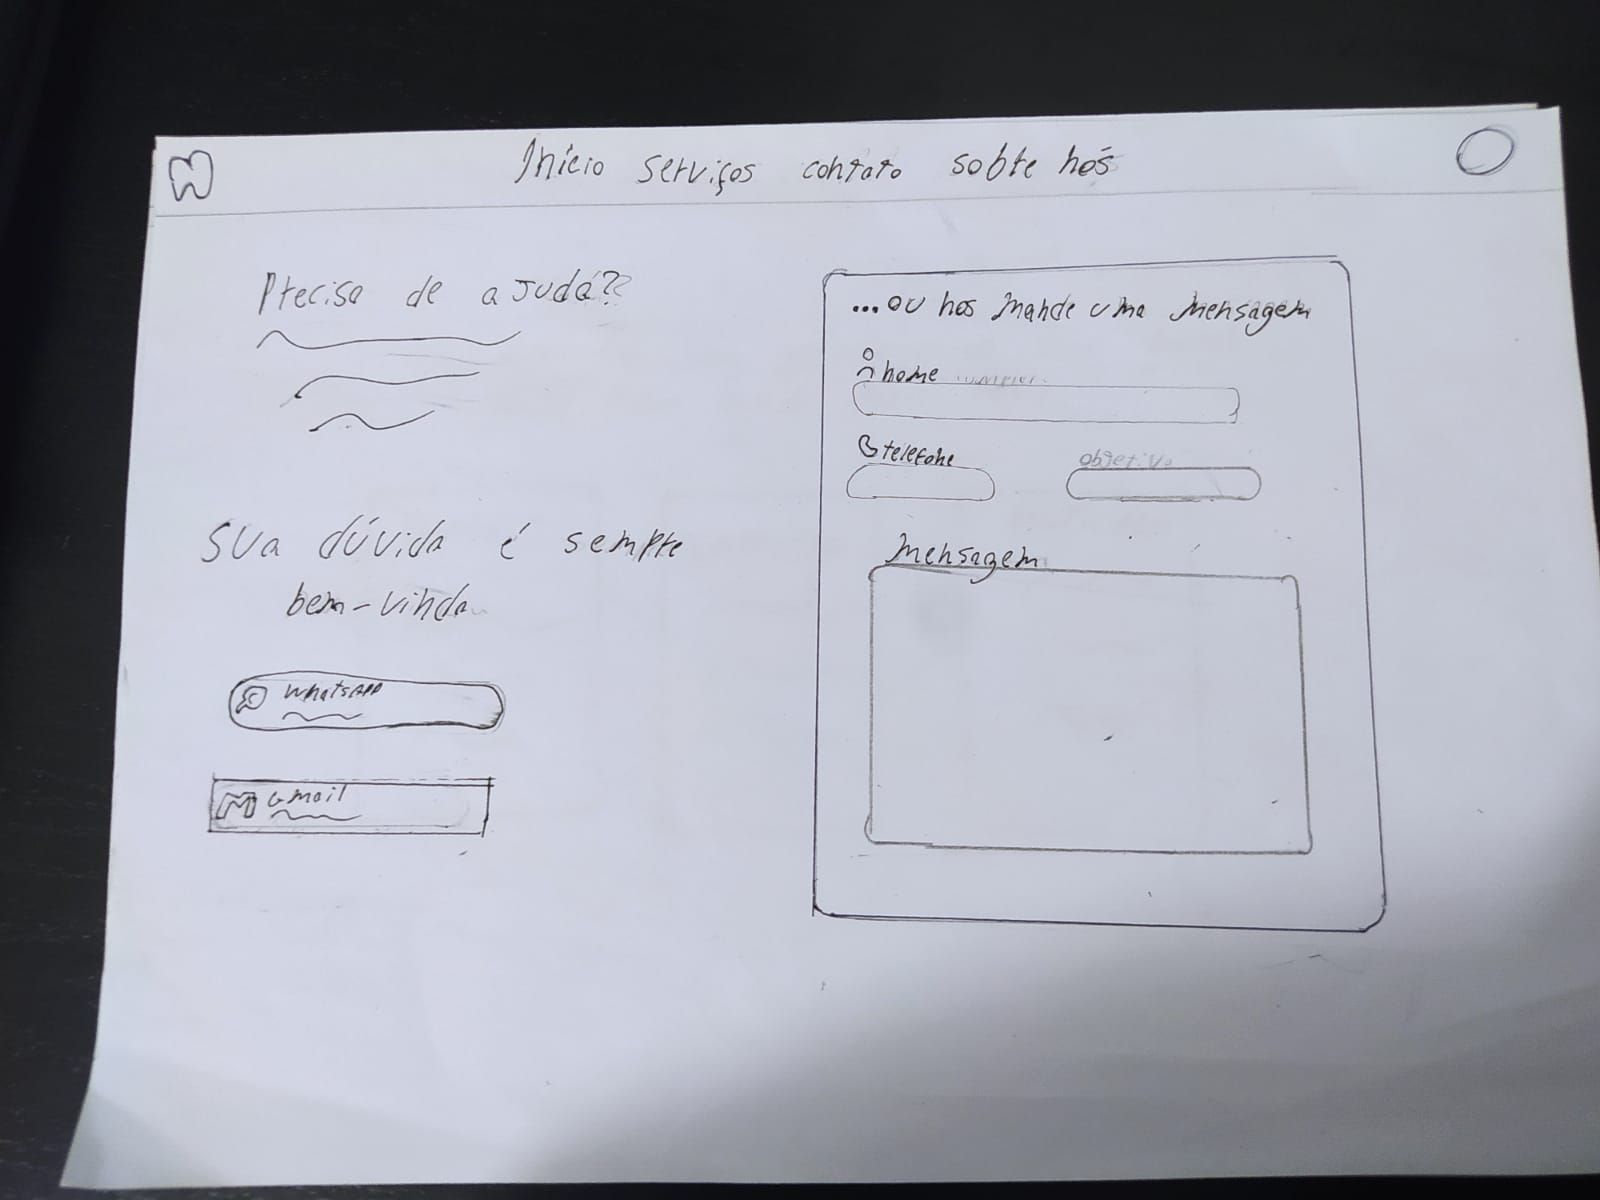 Início serviços contato sobre nós
Precisa de ajuda??
Sua dúvida é sempre
bem-vinda
WhatsApp
Gmail
...ou nos mande uma mensagem
nome
telefone
objetivo
mensagem